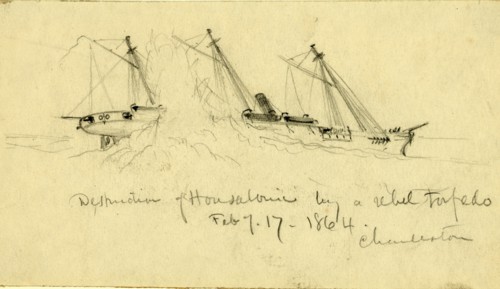 Destruction of Housatonic by a rebel torpedo
Feby. 17 - 1864.
Charleston